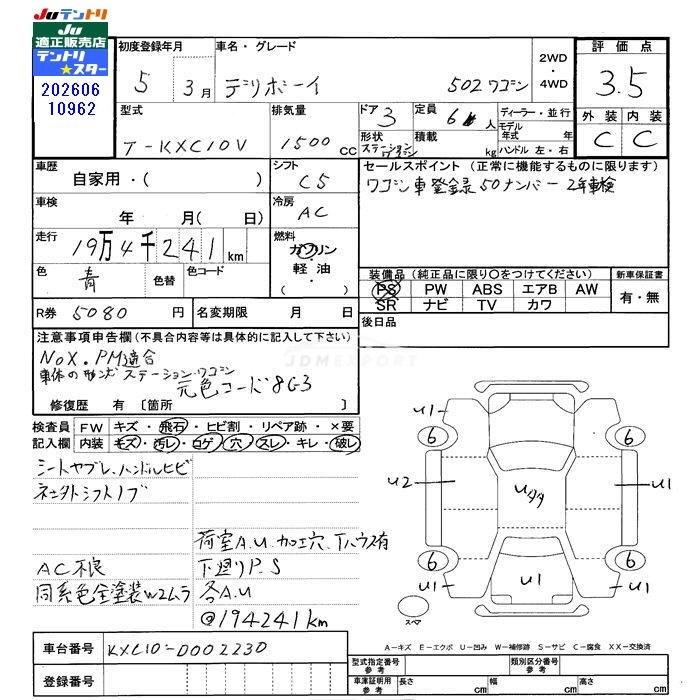 Juテントリ
Ju
適正販売店
テントリ
★スター
202606
10962
初度登録年月
5 3月
車名・グレード
デリボーイ 502ワゴン
2WD
・
4WD
評価点
3.5
外装 内装
C C
型式
T-KXC10V
排気量
1500 CC
ドア 3
形状 ステーションワゴン
定員 6人
積載 kg
ディーラー・並行
モデル年式 年
ハンドル 左・右
車歴
自家用・( )
シフト
C5
セールスポイント (正常に機能するものに限ります)
ワゴン車登録50ナンバー 2年車検
車検
年 月( 日)
冷房
AC
走行
19万4千241km
燃料
ガソリン
軽油・
色
青
色替
色コード
装備品 (純正品に限り○をつけてください)
PS PW ABS エアB AW
SR ナビ TV カワ
新車保証書
有・無
R券 5080 円
名変期限 月 日
後日品
注意事項申告欄(不具合内容等は具体的に記入して下さい)
NoX.PM適合
車体の形状ステーションワゴン
元色コード8G3
修復歴 有 [箇所 ]
JDMEXPORT
検査員記入欄
FW キズ・飛石・ヒビ割・リペア跡・×要
内装 キズ・汚レ・コゲ・穴・スレ・キレ・破レ
シートヤブレ、ハンドルヒビ
ネジ外シフトノブ
荷室A.U.加工穴、Tハウス有
AC不良
下廻りP.S
同系色全塗装W2ムラ
各A.U
@194241km
U1
6
6
U2
U1
Uタタ
6
6
U1
U1
U1
スペア
車台番号 KXC10-0002230
登録番号
A-キズ E-エクボ U-凹み W-補修跡 S-サビ C-腐食 XX-交換済
型式指定番号参考
類別区分番号参考
車庫証明用参考
長さ cm
幅 cm
高さ cm